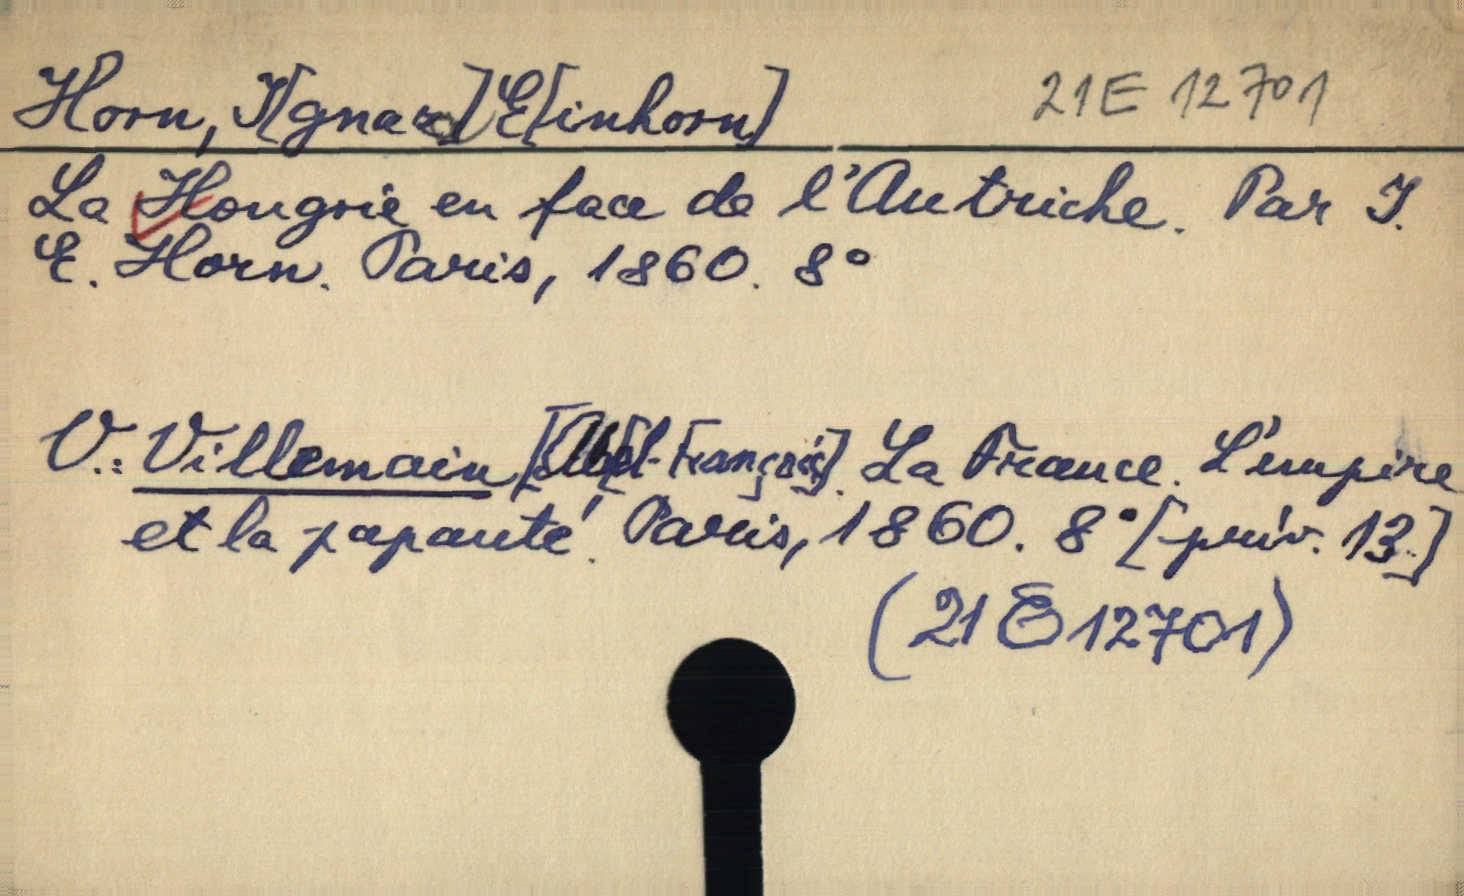 Horn, I[gnaz] E[inhorn] 21E 12701
La Hongrie en face de l'Autriche. Par I.
E. Horn. Paris, 1860. 8°
V.: Villemain [Abel-François]. La France. L'empire
et la papauté. Paris, 1860. 8° [priv. 13.]
(21 E 12701)